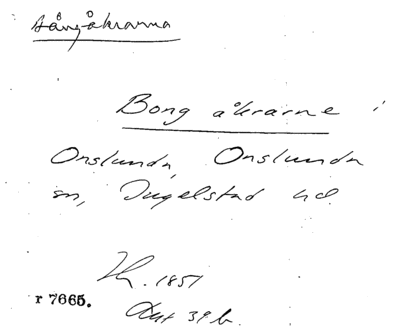 Bångåkrarna
Bong åkrarne i
Onslunda, Onslunda
sn, Ingelstad hd.
1851
r 7665.
39 b.